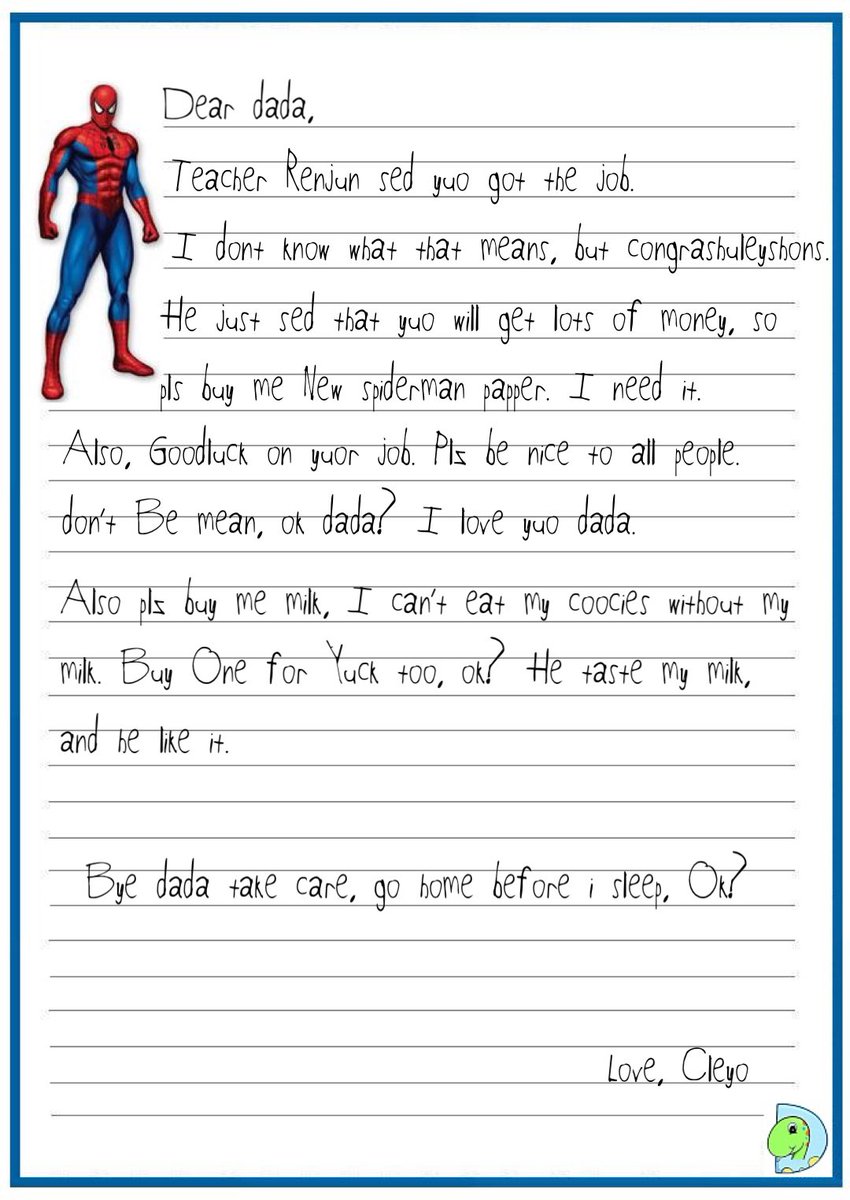 Dear dada,
Teacher Renjun sed yuo got the job.
I dont know what that means, but congrashuleyshons.
He just sed that yuo will get lots of money, so
pls buy me New spiderman papper. I need it.
Also, Goodluck on yuor job. Pls be nice to all people.
don't Be mean, ok dada? I love yuo dada.
Also pls buy me milk, I can't eat my coocies without my
milk. Buy One for Yuck too, ok? He taste my milk,
and he like it.
Bye dada take care, go home before i sleep, Ok?
Love, Cleyo